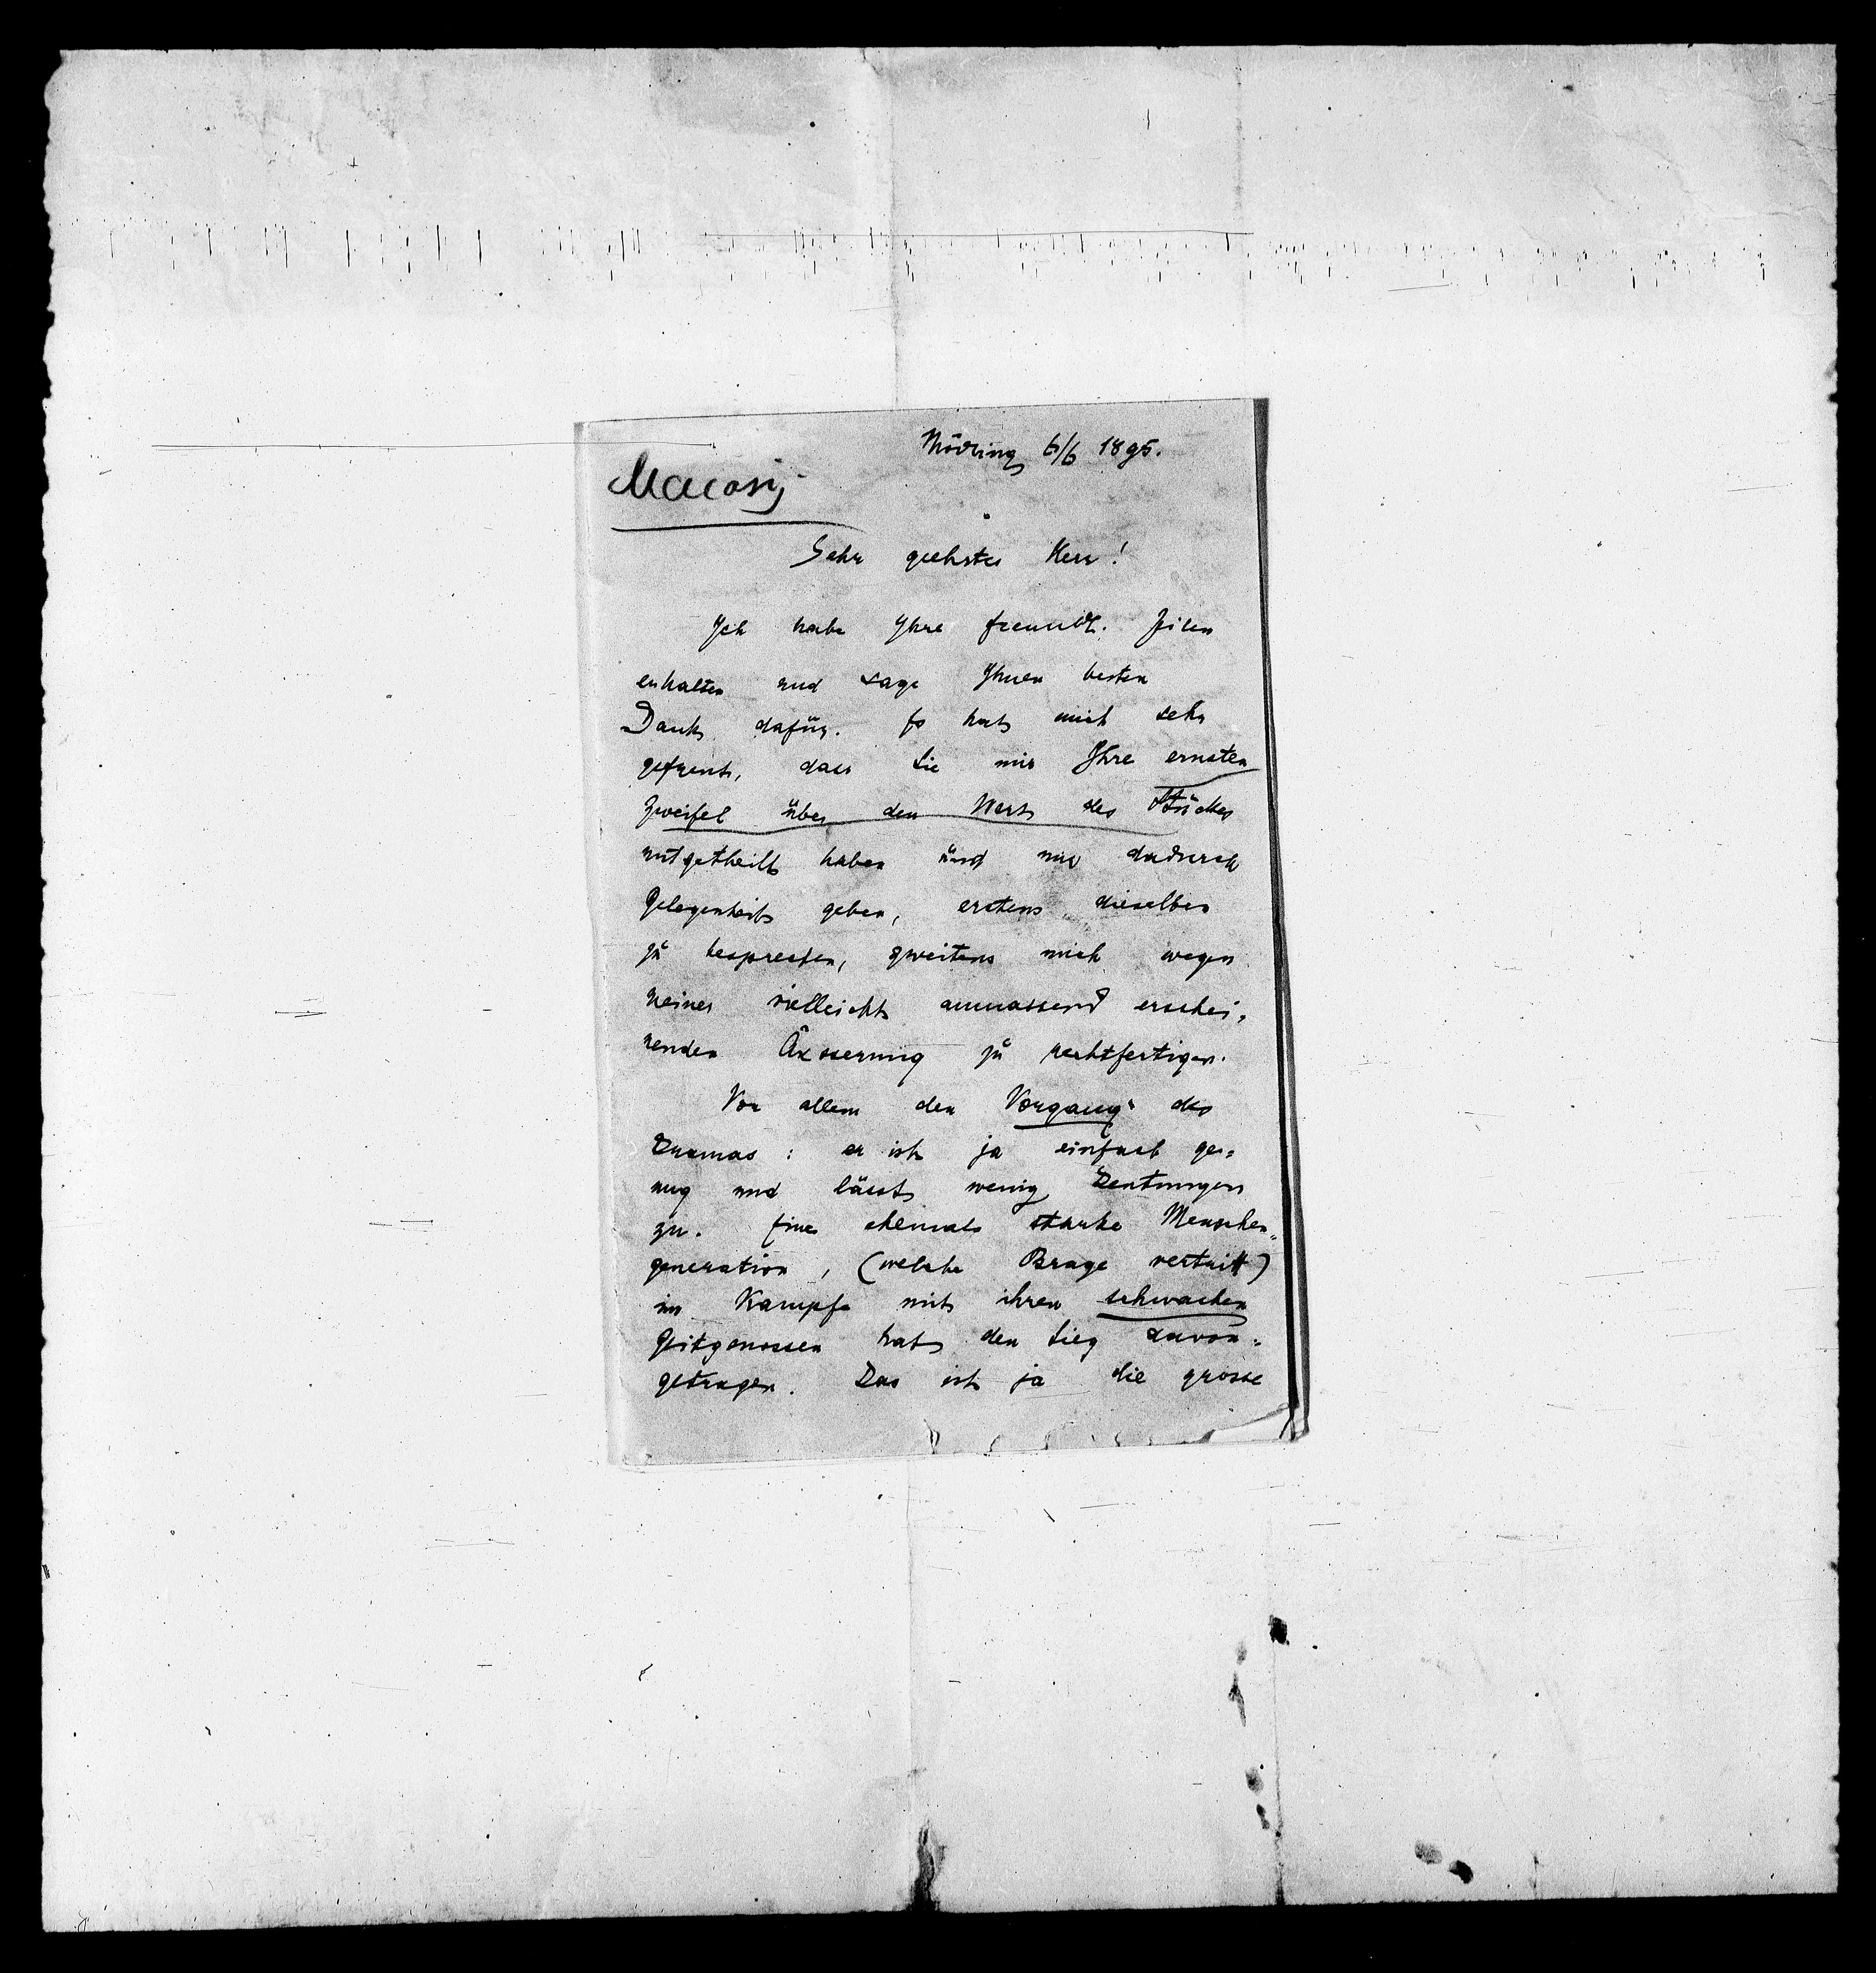 Mödling 6/6 1895.
Sehr geehrter Herr!
Ich habe Ihre freundl. Zeilen
erhalten und sage Ihnen besten
Dank dafür. Es hat mich sehr
gefreut, dass Sie mir Ihre ernsten
Zweifel über den Wert des Stückes
mitgetheilt haben und mir dadurch
Gelegenheit geben, erstens dieselben
zu besprechen, zweitens mich wegen
meiner vielleicht anmassend erschei-
nenden Äusserung zu rechtfertigen.
Vor allem den Vorgang des
Dramas: er ist ja einfach ge-
nug und lässt wenig Deutungen
zu. Eine ehemals starke Menschen-
generation, (welche Brage vertritt)
im Kampfe mit ihren schwachen
Zeitgenossen hat den Sieg davon-
getragen. Das ist ja die grosse